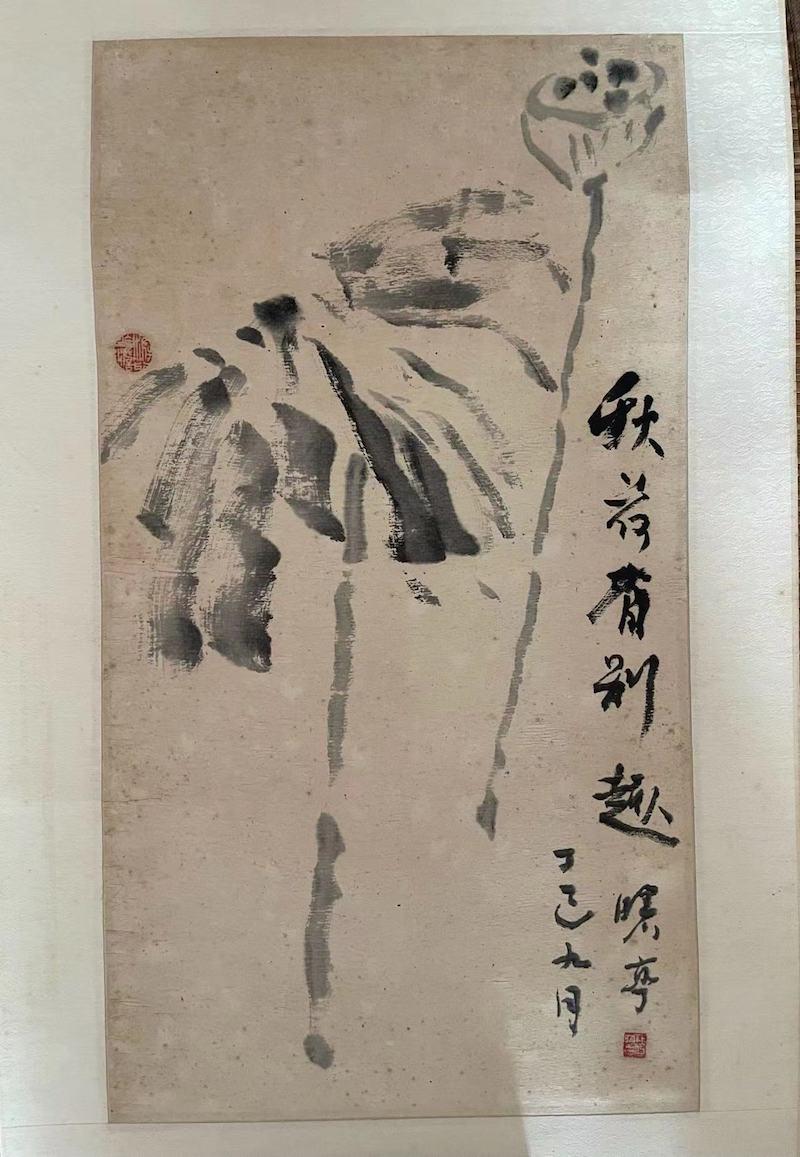 秋荷有别趣
亭
丁巳九月